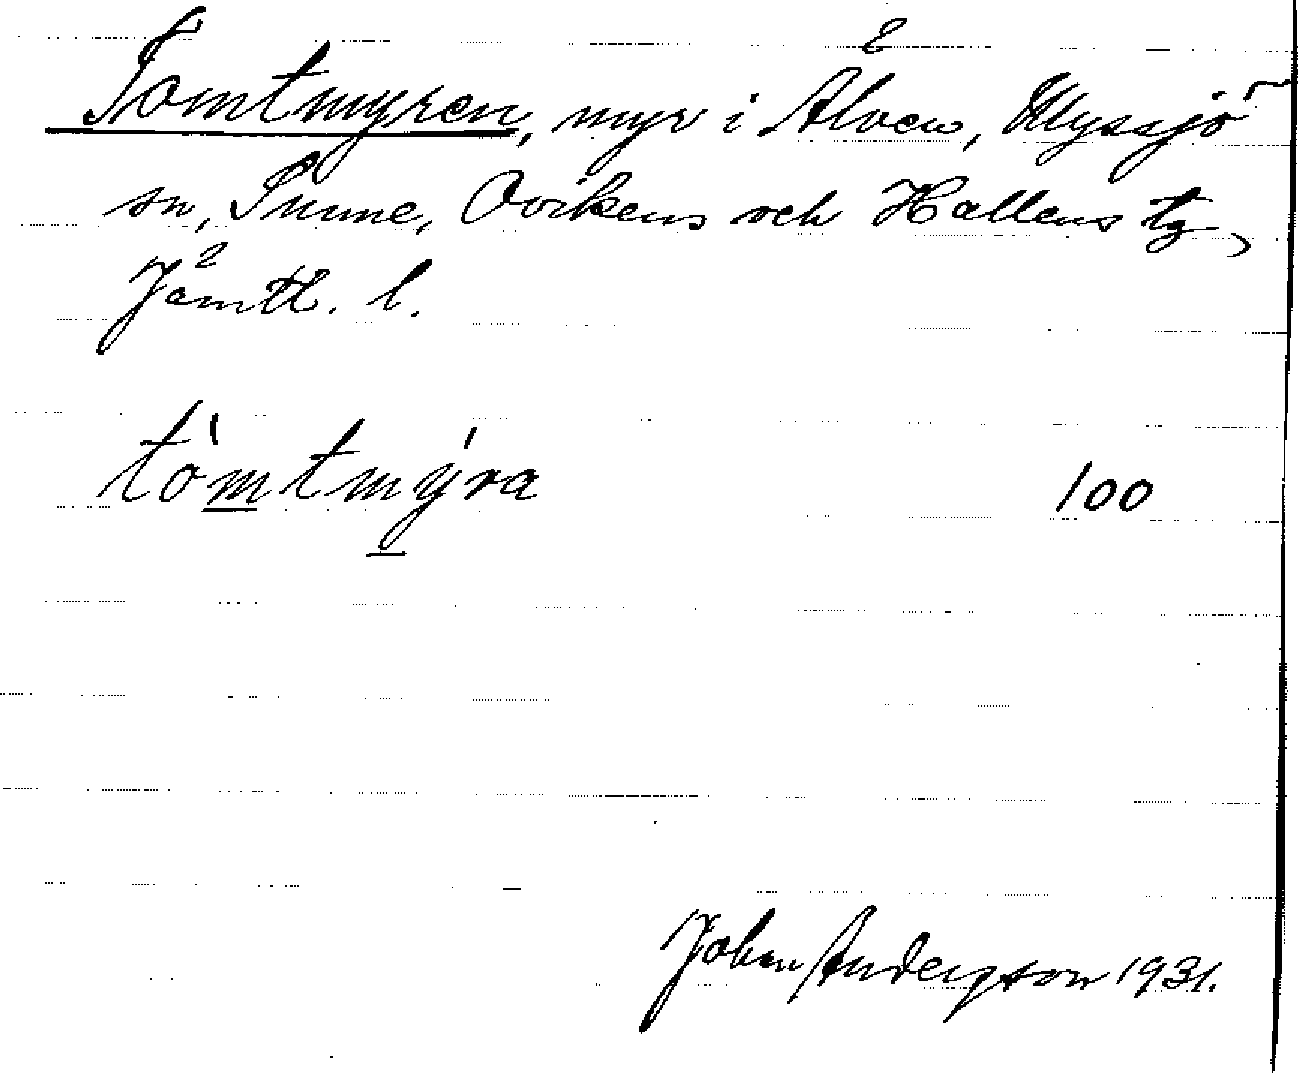 Tomtmyren, myr i Älven, Myssjö
sn, Sunne, Ovikens och Hallens tg,
Jämtl. l.
tòmtmýra 100
Johan Andersson 1931.